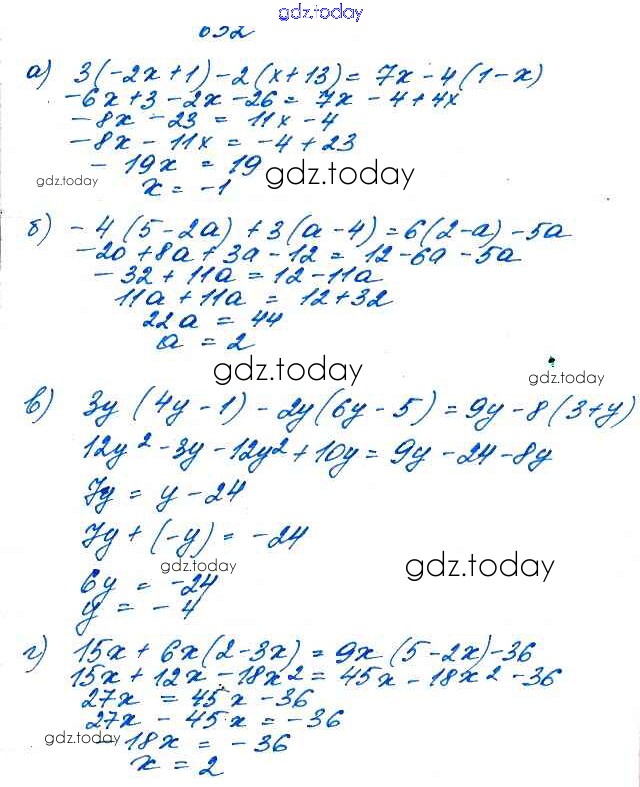 gdz.today
а) 3(-2x+1)-2(x+13)= 7x-4(1-x)
-6x+3-2x-26= 7x-4+4x
-8x-23= 11x-4
-8x-11x= -4+23
-19x = 19
gdz.today
gdz.today
x= -1
б) -4(5-2a)+3(a-4)=6(2-a)-5a
-20+8a+3a-12= 12-6a-5a
-32+11a=12-11a
11a+11a = 12+32
22a = 44
a = 2
gdz.today
gdz.today
в) 3y(4y-1)-2y(6y-5)=9y-8(3+y)
12y²-3y-12y²+10y=9y-24-8y
7y = y-24
7y+(-y)= -24
gdz.today
gdz.today
6y = -24
y = -4
г) 15x+6x(2-3x)=9x(5-2x)-36
15x+12x-18x²=45x-18x²-36
27x = 45x-36
27x-45x=-36
gdz.today
-18x = -36
x = 2